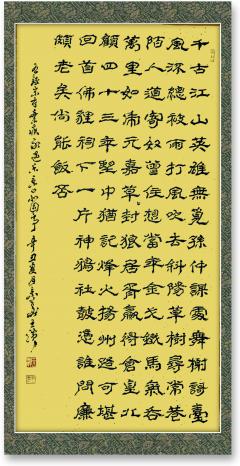 千古江山英雄無覓孫仲謀處舞榭謌臺
風流總被雨打風吹去斜陽草樹尋常巷
陌人道寄奴曾住想當年金戈鐵馬氣吞
萬里如虎元嘉草封狼居胥贏得倉皇北
顧四十三年望中猶記烽火揚州路可堪
回首佛狸祠下一片神鴉社鼓憑誰問廉
頗老矣尚能飯否
辛丑夏月